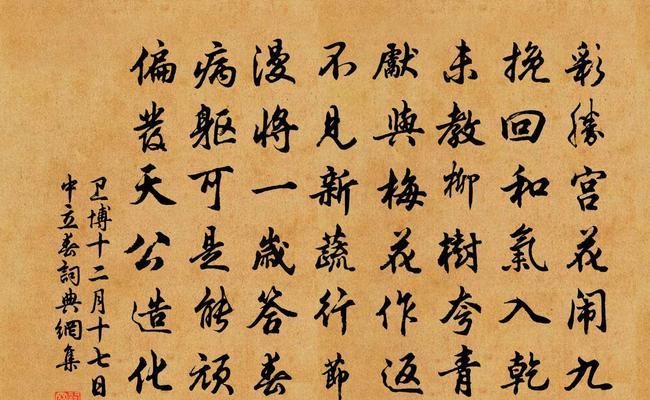 彩勝宮花闹九
挽回和氣入乾
未教柳樹夸青
獻與梅花作返
不見新蔬行節
漫將一歲答春
病軀可是能頑
偏發天公造化
卫博十二月十七日
中立春詞典網集